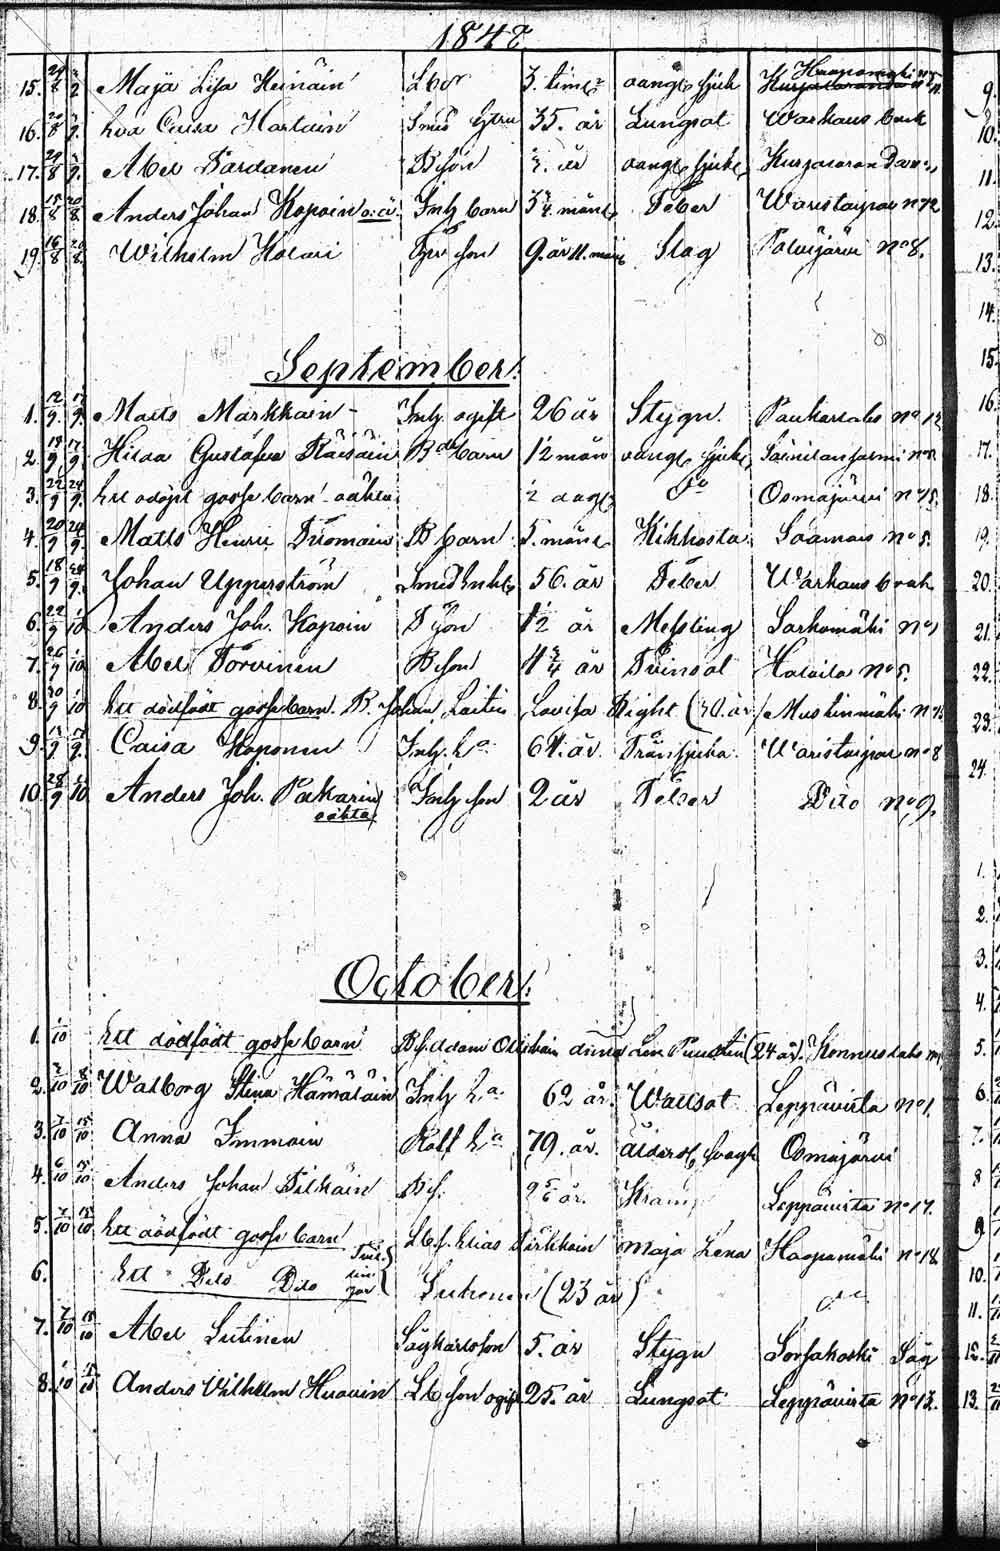 1848
15. 29/8 Maja Lisa Heinäin Lb dr 3. tim: oangf. sjuk Haapamäki n°
16. Eva Caisa Hartein Smed Enka 35. år Lungsot Warkaus bruk
17. 29/8 Abel Pardanen B. son år oangf. sjukd Kurjalaranda n°
18. 15/8 20/8 Anders Johan Kopoin o: ä: Inh barn 3 3/4 månd Feber Waristaipal n° 12
19. 16/8 20/8 Wilhelm Kolari son 9. år 11. mån Slag Polvijärvi N° 8.
September:
1. 12/9 17/9 Matts Markkain Inh. ogift 26 år Stygn. Paukarlahs n° 12
2. 13/9 17/9 Hilda Gustafva Räisäin B. barn 1/2 mån oangf. sjukd Sainilansalmi n° 8.
3. 22/9 24/9 Ett odöpt gosse barn oäkta 1/2 dag D° Osmajärvi n° 15.
4. 20/9 24/9 Matts Henric Tuomain B barn 5. månd Kikhosta Saamais n° 5.
5. 18/9 24/9 Johan Upperström Smed Enkl. 56. år Feber Warkaus bruk
6. 22/9 1/10 Anders Joh. Kopoin D. son 1 1/2 år Messling Sarkamäki n° 1
7. 26/9 1/10 Abel Torvinen B. son 4 3/4 år Tvinsot Kataila n° 5.
8. 30/9 1/10 Ett dödfödt gosse barn. B. Johan Laitin Lovisa Sight (30. år) Mustinmäki n°
9. 13/9 17/9 Caisa Koponen Inh. E:a 64. år. Trånsjuka. Waristaipal n° 8
10. 28/9 /10 Anders Joh. Pakarin Inh son 2 år Feber Dito n° 9.
oäkta
October:
1. 1/10 Ett dödfödt gosse barn Bs. Adam Ollikain Lena (24 år). Konnuslaks n°
2. 2/10 8/10 Walborg Stina Hämäläin Inh E.a 62 år. Wattsot Leppävirta n° 1.
3. 7/10 15/10 Anna Immoin Rotf E:a 79. år. ålderds. svagh Osmajärvi
4. 6/10 15/10 Anders Johan Tilkäin Bs. år. Kramp Leppävirta n° 17.
5. 7/10 15/10 Ett dödfödt gosse barn Lbs. Elias Kärkkäin Maja Lena Haapamäki n° 18.
6. Ett Dito Dito Tvillingar Lukonen (23 år)
7. 7/10 15/10 Abel Lutinen Sågkarls son 5. år Stygn Sorsakoski Såg
8. 1/10 15/10 Anders Vilhelm Huovin Lb son ogift 25. år Lungsot Leppävirta N° 13.
9.
10.
11.
12.
13.
14.
15.
16.
17.
18.
19.
20.
21.
22.
23.
24.
1.
2.
3.
4.
5.
6.
7.
8
9
10.
11.
12.
13.